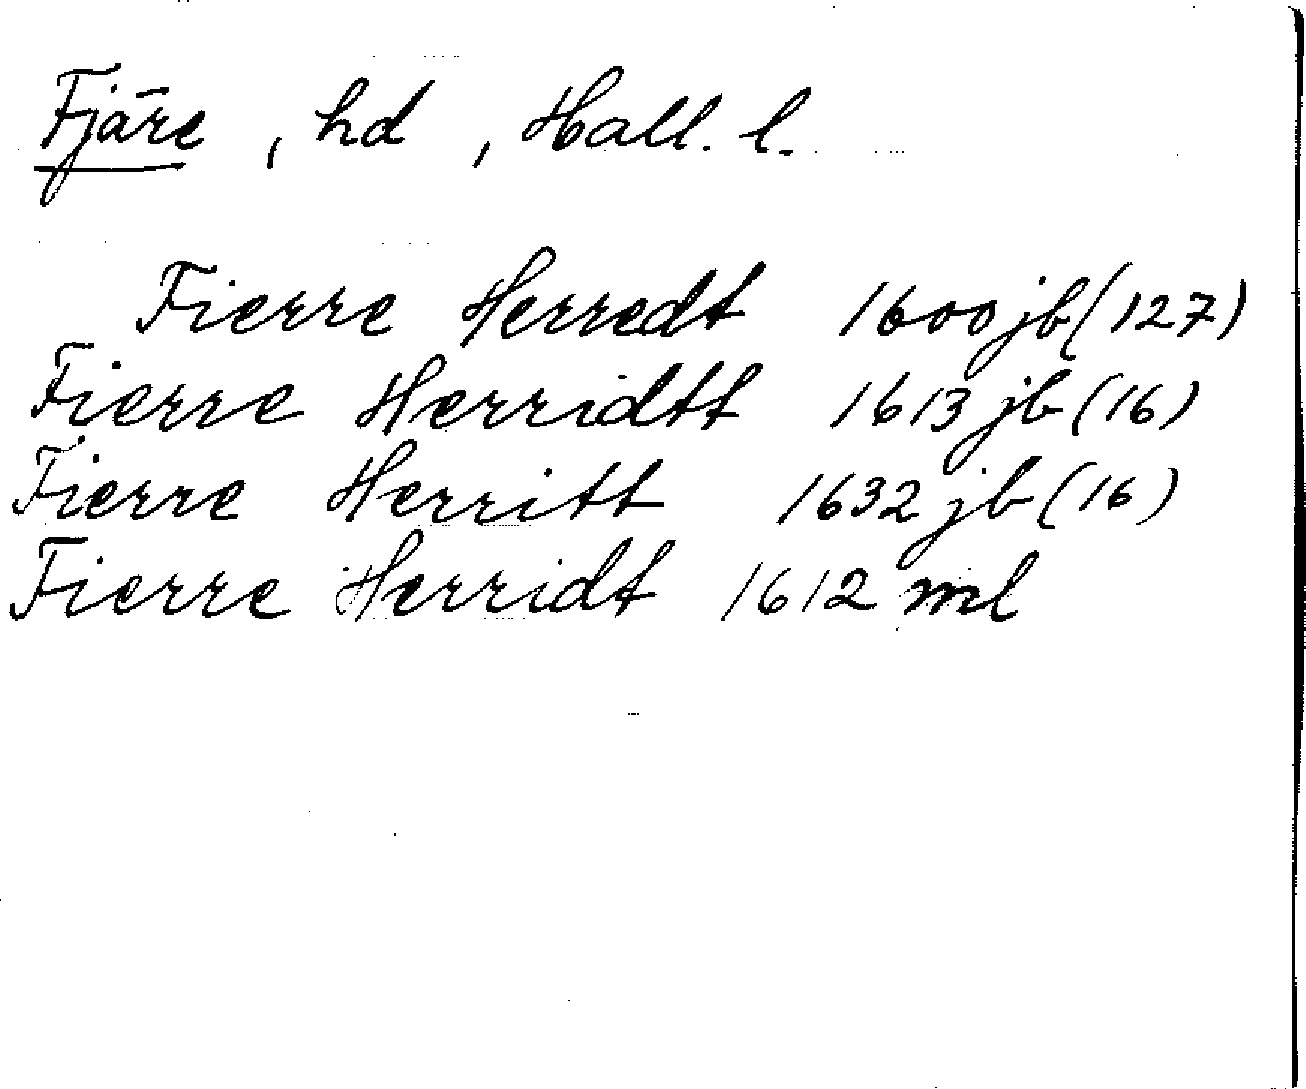 Fjäre, hd, Hall. l.
Fierre Herredt 1600 jb (127)
Fierre Herridtt 1613 jb (16)
Fierre Herritt 1632 jb (16)
Fierre Herridt 1612 ml